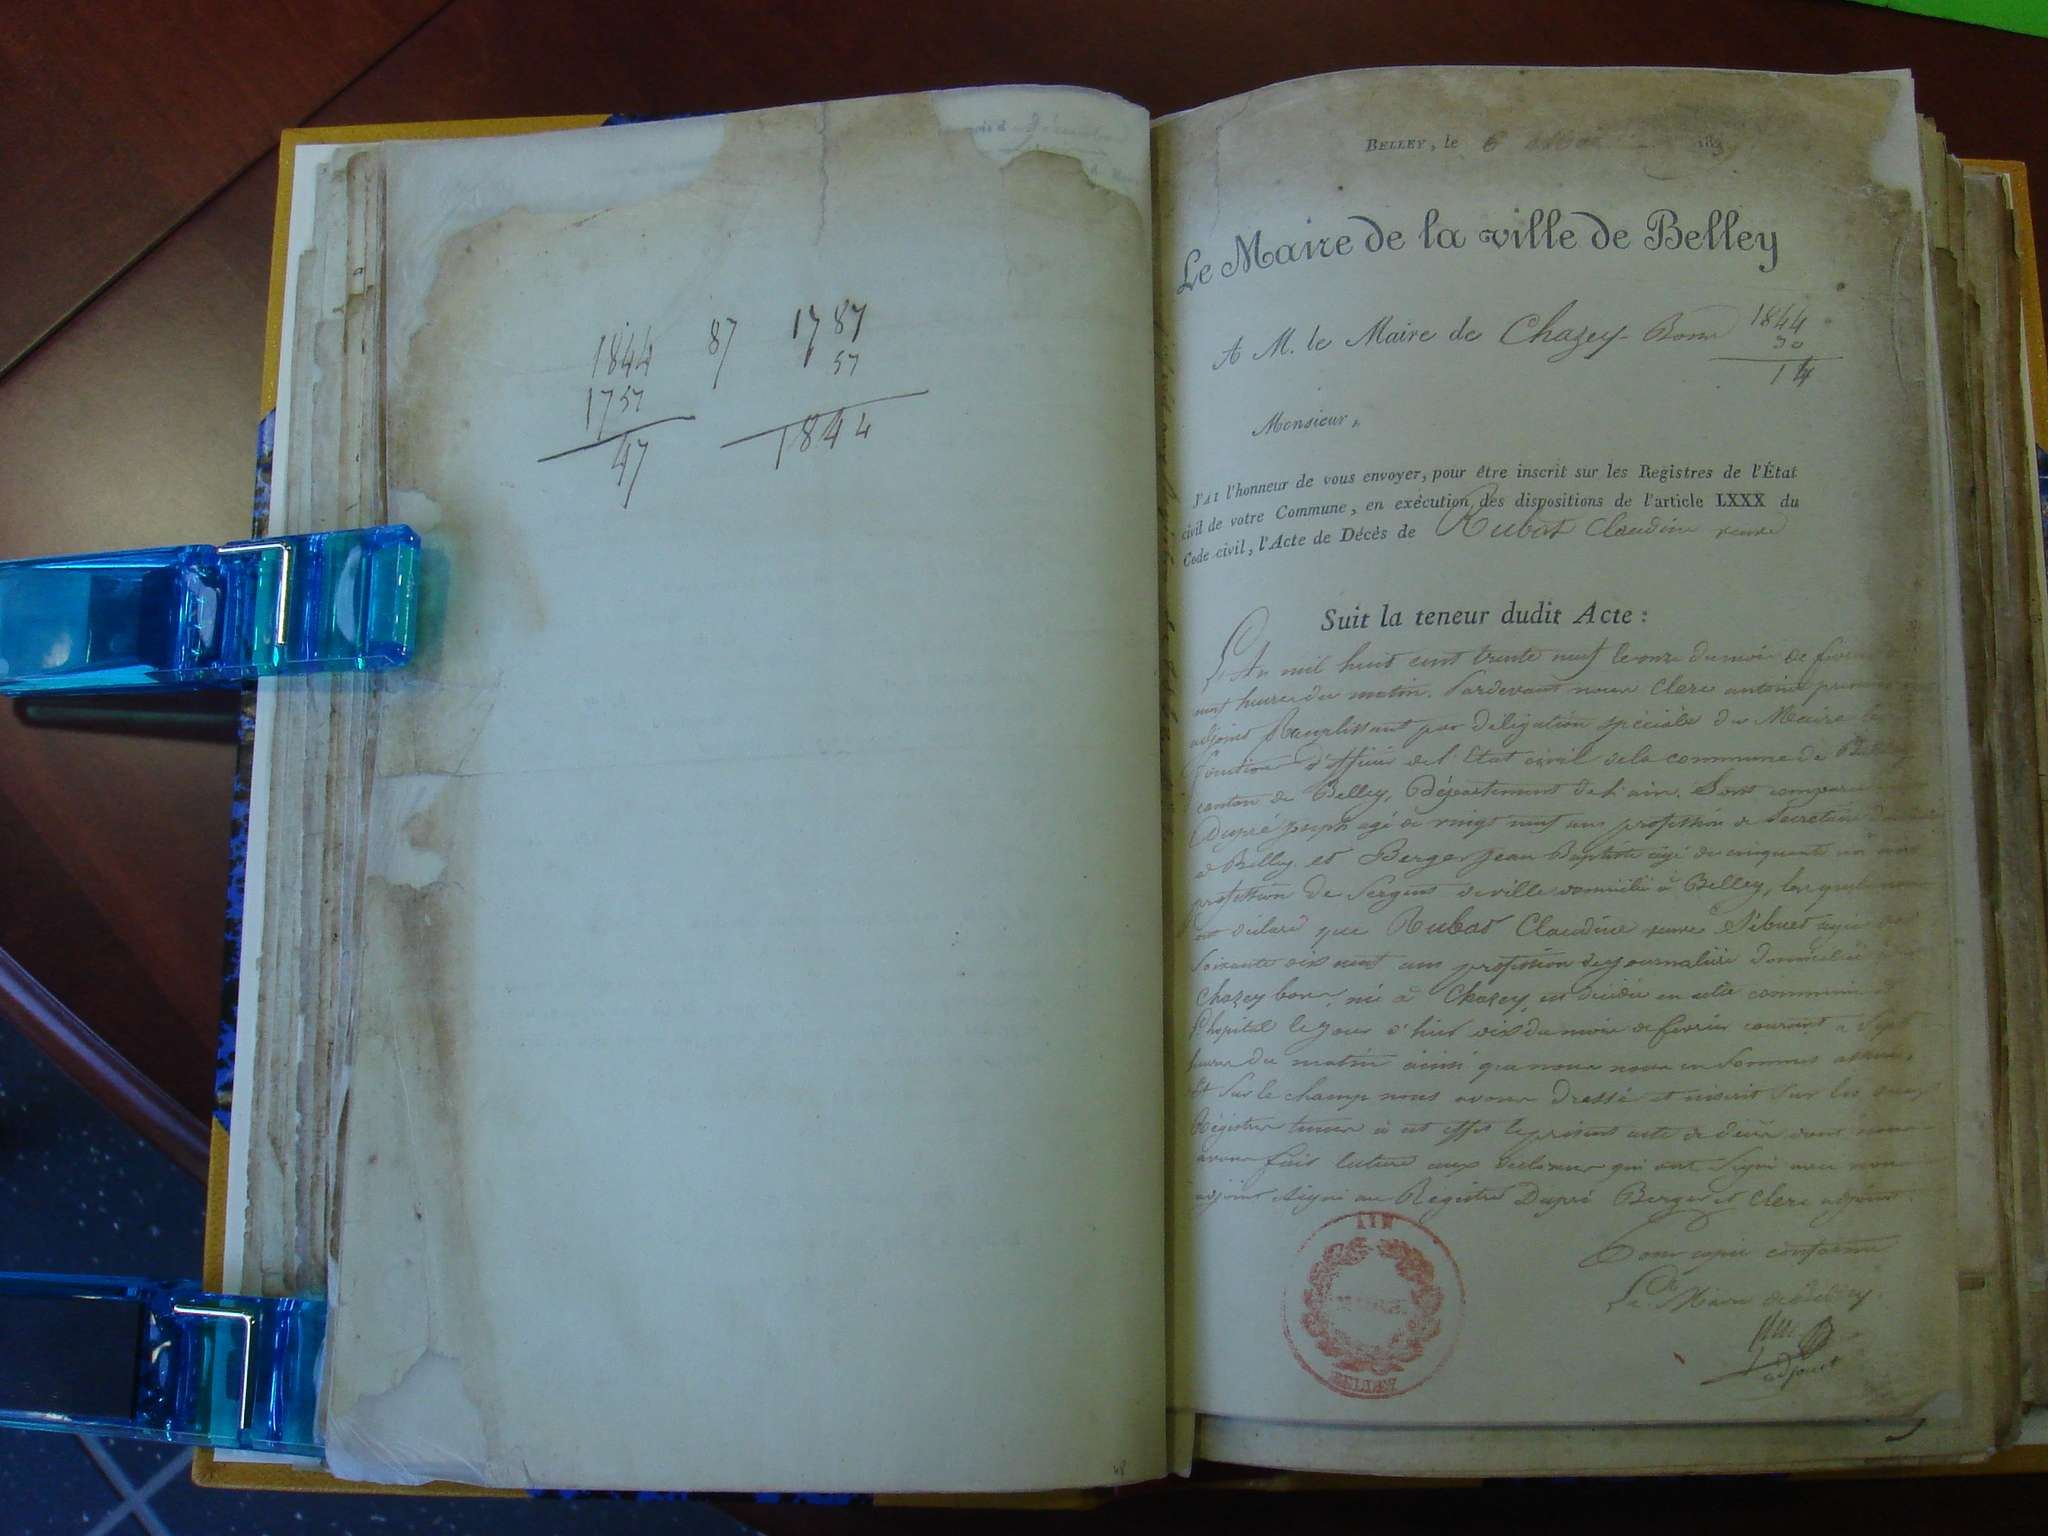 1844 87 1787
1757 57
47 1844
BELLEY, le 6 183
Le Maire de la ville de Belley
A M. le Maire de Chazey-Bons
1844
30
14
Monsieur,
J'AI l'honneur de vous envoyer, pour être inscrit sur les Registres de l'État
civil de votre Commune, en exécution des dispositions de l'article LXXX du
Code civil, l'Acte de Décès de Rubat Claudine veuve
Suit la teneur dudit Acte :
L'An mil huit cent trente neuf le onze du mois de fevrier
neuf heures du matin. Pardevant nous Clerc antoine premier
adjoint Remplissant par deligation speciale du Maire les
fonctions d'Officier de l'Etat civil de la commune de Belley
canton de Belley, Département de l'ain. Sont comparus
Dupré joseph agé de vingt neuf ans profession de Secretaire
à Belley et Berger jean Baptiste agé de cinquante
profession de Sergent de ville domicilié à Belley, lesquels nous
ont déclaré que Rubat Claudine veuve Sibuet agée de
soixante dix neuf ans profession de journaliere domiciliée
Chazey bons, né à Chazey, en décédée en cette commune
l'hopital le jour d'hier dix du mois de fevrier courant à sept
heures du matin ainsi que nous nous en sommes assurés,
Et sur le champ nous avons dressé et inscrit sur les deux
Régistres tenus à cet effet le présent acte de décès dont nous
avons fait lecture aux declarans qui ont signé avec nous
adjoint signé au Régistre Dupré Berger et Clerc adjoint
Pour copie conforme
Le Maire de Belley
adjoint
AIN
MAIRIE
BELLEY
48